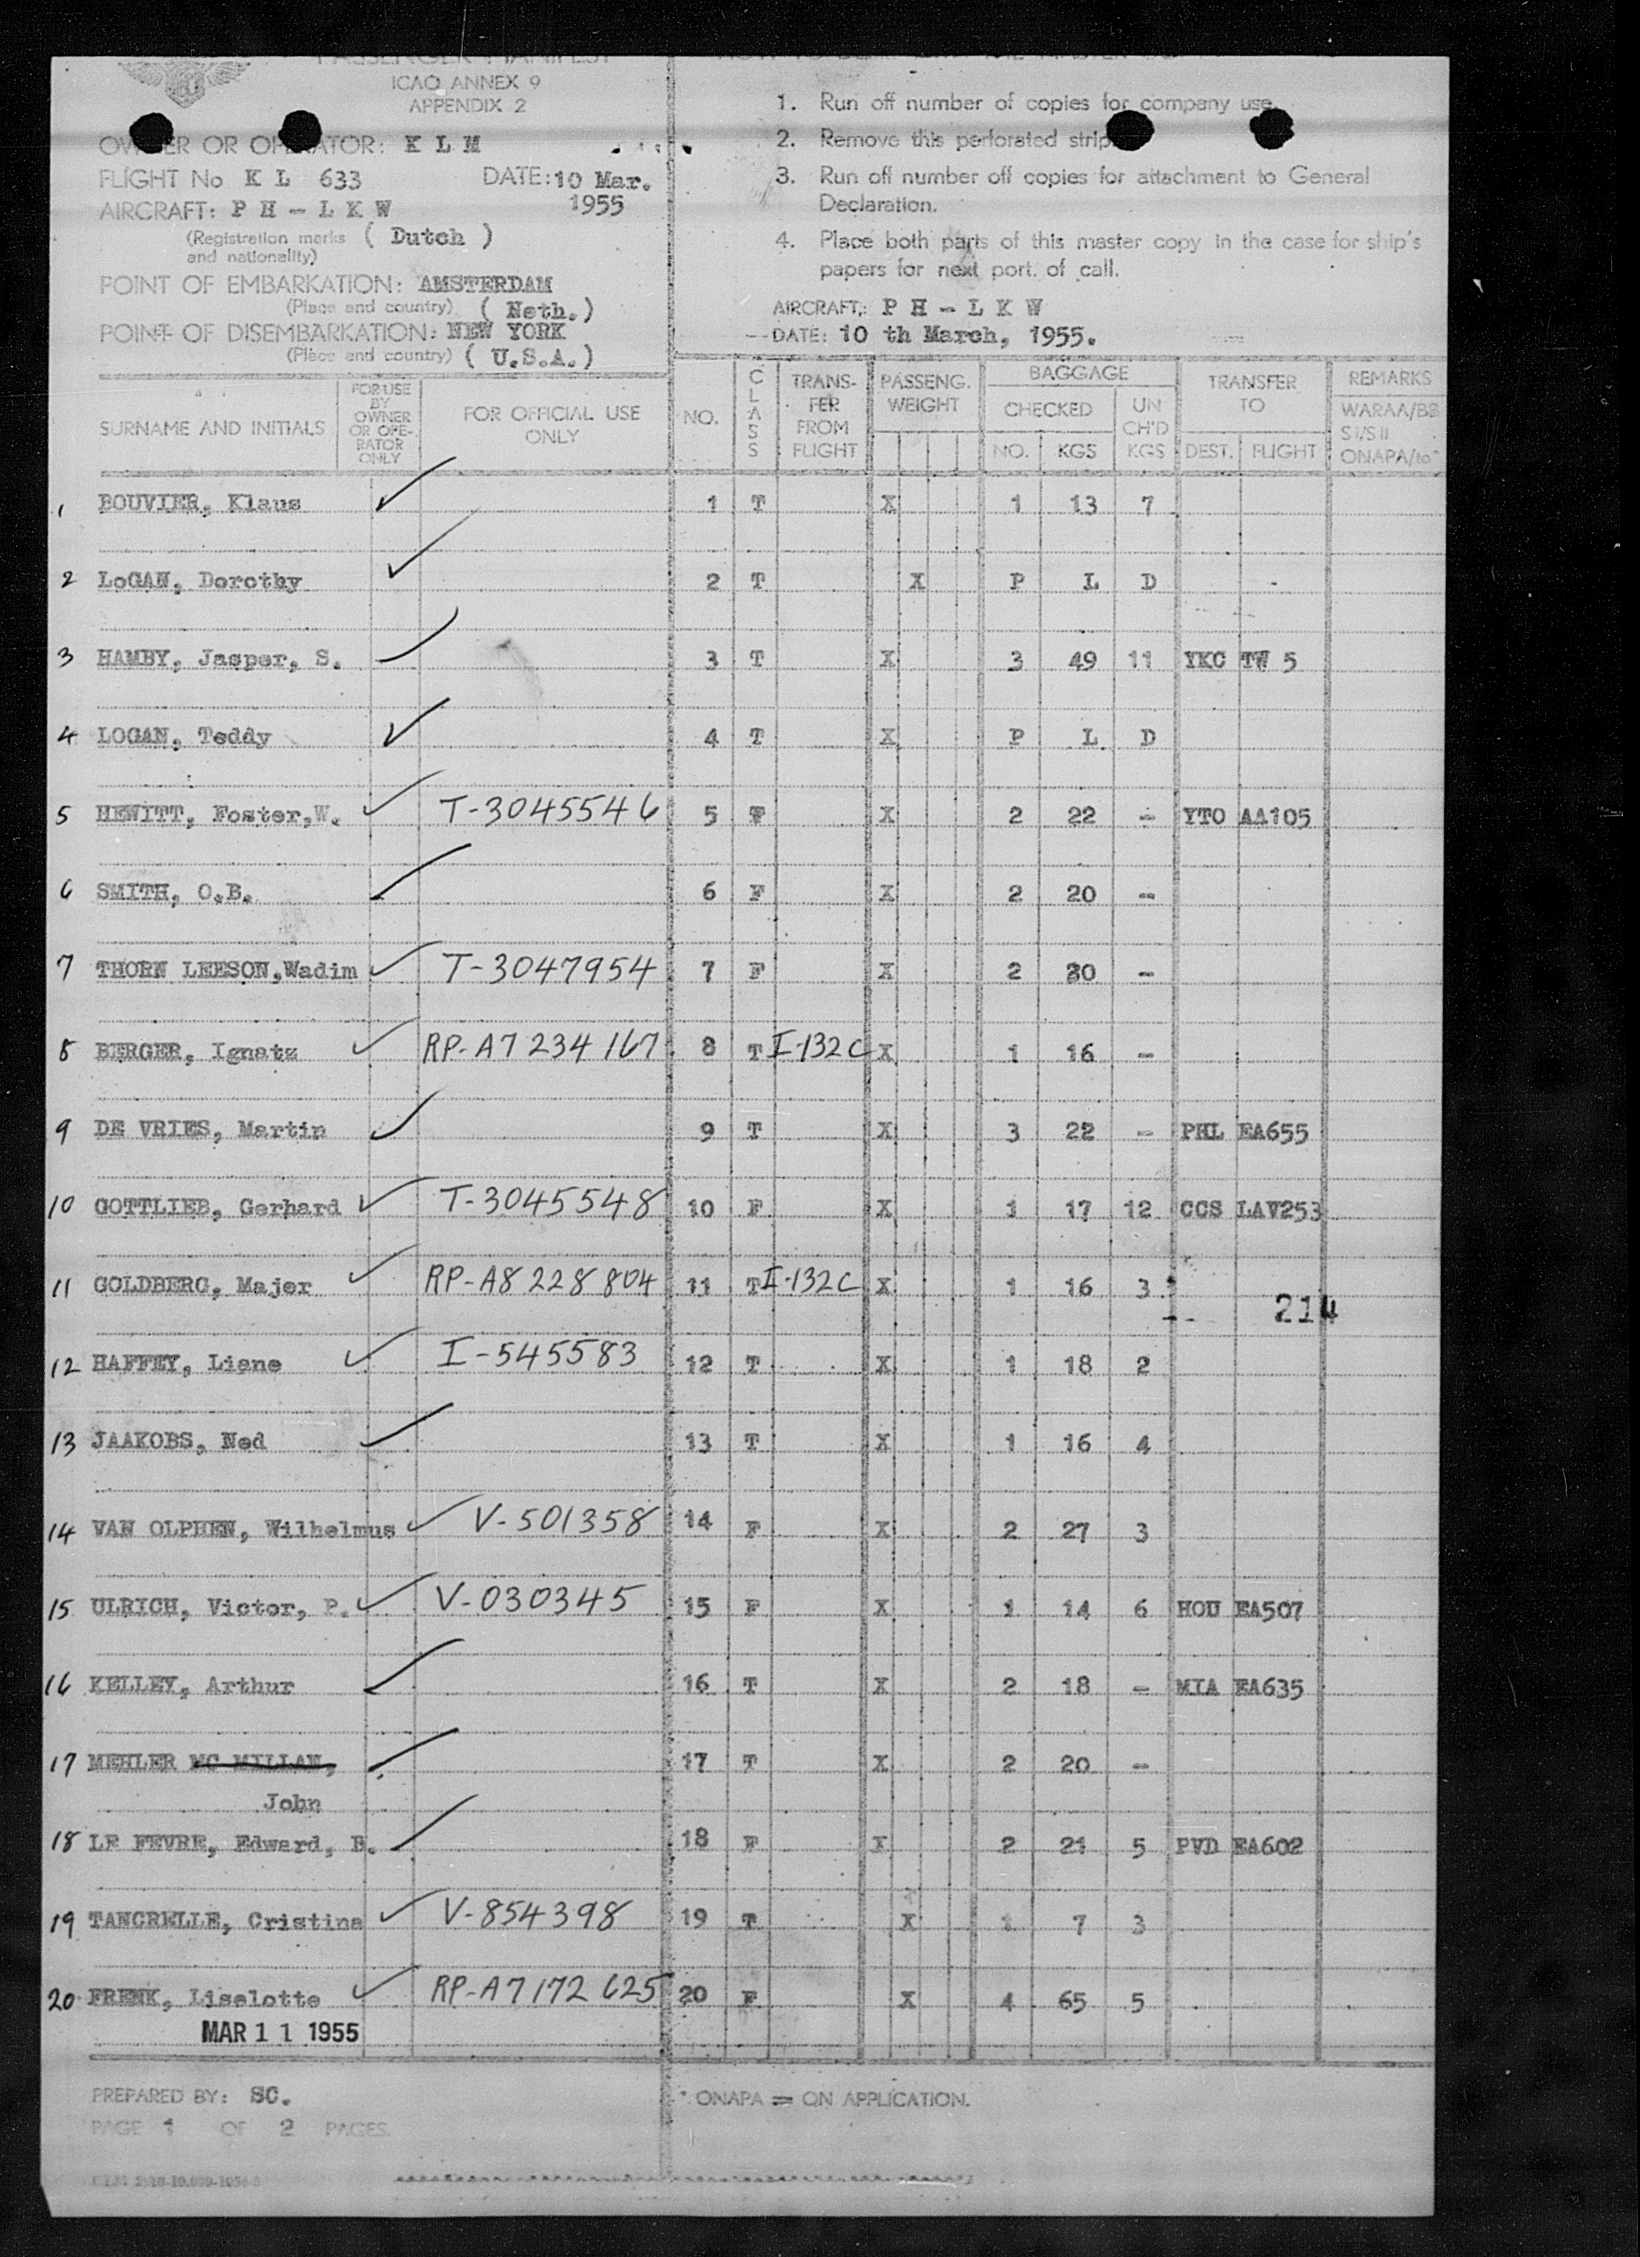 ICAO ANNEX 9
APPENDIX 2
OWNER OR OPERATOR: K L M
FLIGHT No K L 633 DATE: 10 Mar. 1955
AIRCRAFT: P H - L K W
(Registration marks and nationality) ( Dutch )
POINT OF EMBARKATION: AMSTERDAM
(Place and country) ( Neth.)
POINT OF DISEMBARKATION: NEW YORK
(Place and country) ( U.S.A.)
1. Run off number of copies for company use
2. Remove this perforated strip
3. Run off number off copies for attachment to General
Declaration.
4. Place both parts of this master copy in the case for ship's
papers for next port of call.
AIRCRAFT: P H - L K W
DATE: 10 th March, 1955.
SURNAME AND INITIALS FOR USE BY OWNER OR OPE-RATOR ONLY FOR OFFICIAL USE ONLY NO. CLASS TRANS-FER FROM FLIGHT PASSENG. WEIGHT BAGGAGE CHECKED NO. KGS UN CH'D KGS TRANSFER TO DEST. FLIGHT REMARKS WARAA/BB SI/SII ONAPA/to*
1 BOUVIER, Klaus 1 T X 1 13 7
2 LoGAN, Dorothy 2 T X P L D
3 HAMBY, Jasper, S. 3 T X 3 49 11 YKC TW 5
4 LOGAN, Teddy 4 T X P L D
5 HEWITT, Foster,W. T-3045546 5 T X 2 22 - YTO AA105
6 SMITH, O.B. 6 F X 2 20 -
7 THORN LEESON,Wadim T-3047954 7 F X 2 30 -
8 BERGER, Ignatz RP-A7 234 167 8 T I-132C X 1 16 -
9 DE VRIES, Martin 9 T X 3 22 - PHL EA655
10 GOTTLIEB, Gerhard T-3045548 10 F X 1 17 12 CCS LAV253
11 GOLDBERG, Majer RP-A8 228 804 11 T I-132C X 1 16 3
214
12 HAFFEY, Liane I-545583 12 T X 1 18 2
13 JAAKOBS, Ned 13 T X 1 16 4
14 VAN OLPHEN, Wilhelmus V-501358 14 F X 2 27 3
15 ULRICH, Victor, P. V-030345 15 F X 1 14 6 HOU EA507
16 KELLEY, Arthur 16 T X 2 18 - MIA EA635
17 MEHLER MC MILLAN, 17 T X 2 20 -
John
18 LE FEVRE, Edward, B. 18 F X 2 21 5 PVD EA602
19 TANCRELLE, Cristina V-854398 19 T X 1 7 3
20 FRENK, Liselotte RP-A7 172 625 20 F X 4 65 5
MAR 11 1955
PREPARED BY: SC.
* ONAPA = ON APPLICATION.
PAGE 1 OF 2 PAGES